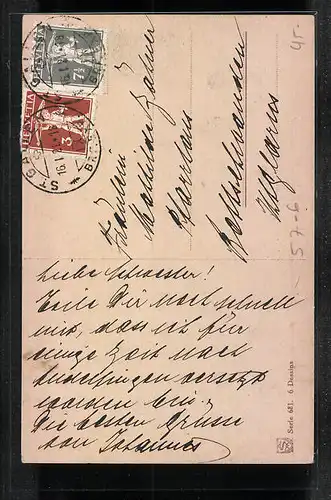 HELVETIA 7½
HELVETIA 3
ST. GALLEN
16.I.
Fräulein
Mathilde Zähner
Pfarrhaus
Kt. Glarus
Liebe Schwester!
Teile Dir noch schnell
mit, dass ich für
einige Zeit nach
versetzt
worden bin.
Die besten Grüsse
von Johannes
Serie 681. 6 Dessins
57-6